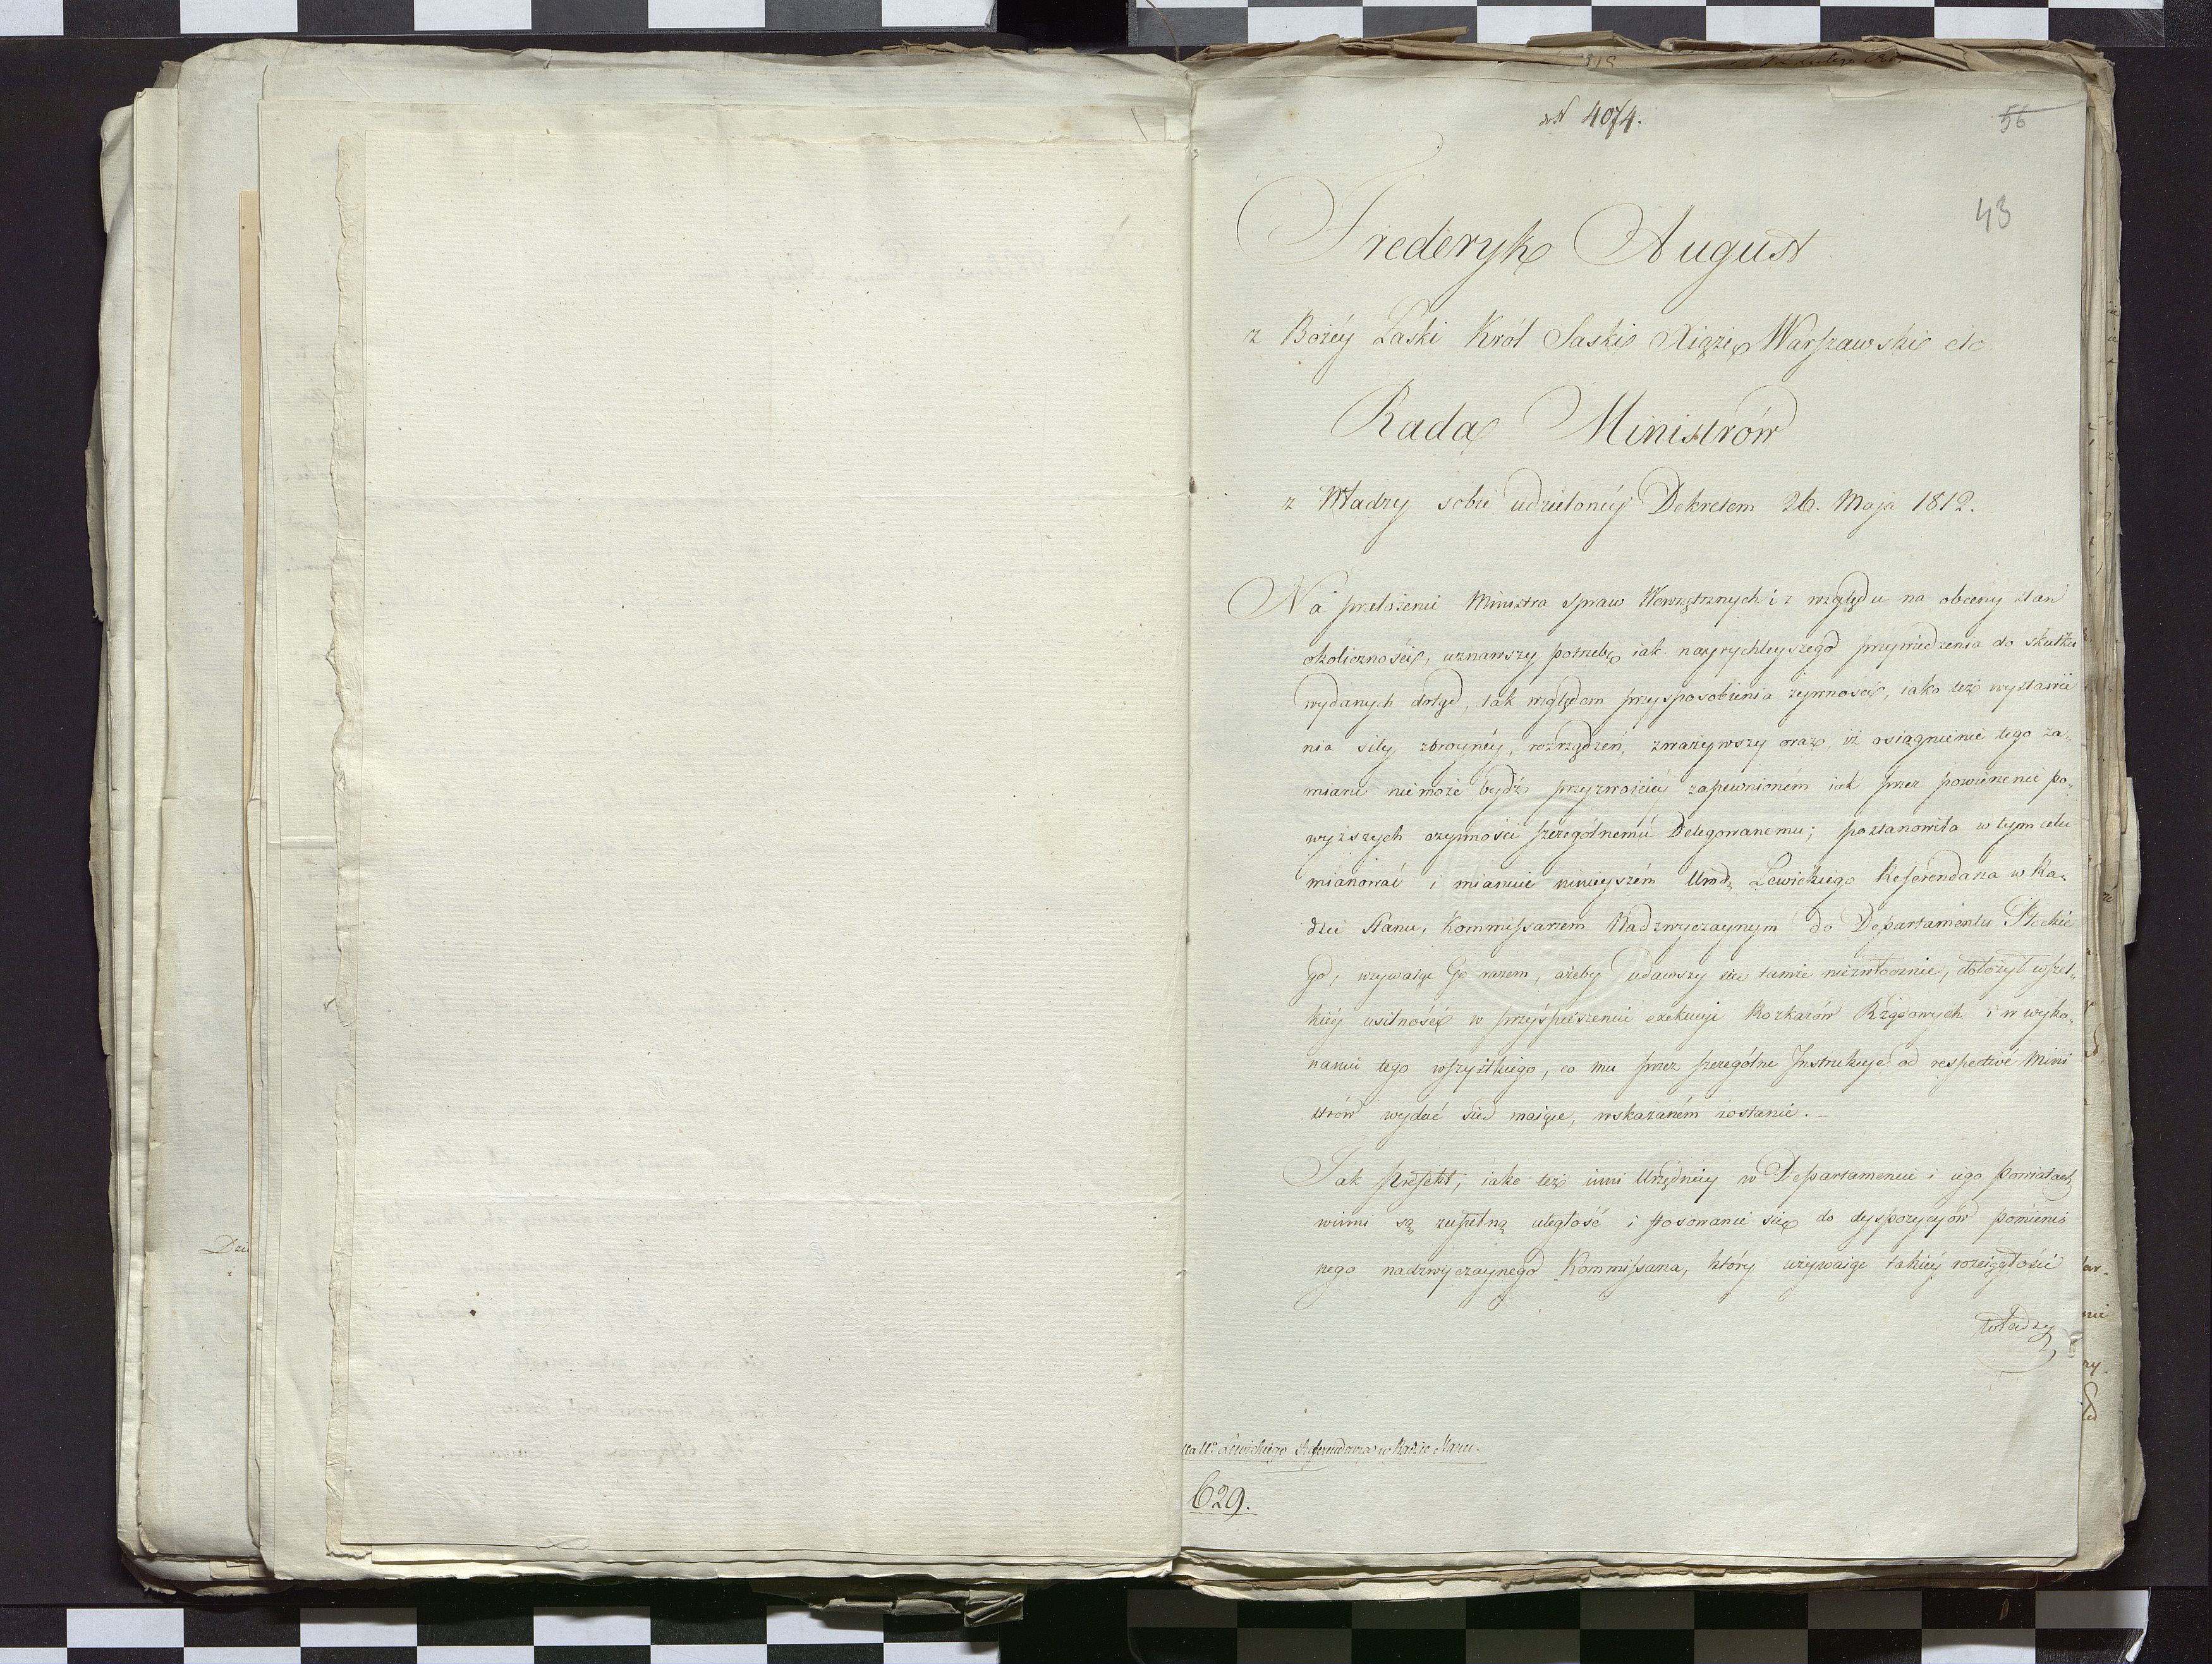 № 4074.
56
43
Frederyk August
z Bożéy Łaski Król Saski Xiążę Warszawski etc
Rada Ministrów
z Władzy sobie udzielonéy Dekretem 26. Maja 1812.
Na przełożenie Ministra Spraw Wewnętrznych i z względu na obecny stan
okoliczności, uznawszy potrzebę iak nayrychleyszego przywiedzenia do skutku
wydanych dotąd, tak względem przysposobienia żywności, iako też wystawie
nia siły zbroynéy, rozrządzeń, zważywszy oraz, iż osiągnienie tego za„
miaru nie może bydź przyzwoiciéy zapewnioném iak przez powierzenie po„
wyższych czynności szczególnemu Delegowanemu; postanowiła w tym celu
mianować i mianuie ninieyszém Urodz. Lewickiego Referendarza w Ra„
dzie Stanu, Kommissarzem Nadzwyczaynym do Departamentu Płockie
go, wzywaiąc Go razem, ażeby udawszy się tamże niezwłocznie, dołożył wszel„
kiéy usilności w przyśpieszeniu exekucyi Rozkazów Rządowych i w wyko„
naniu tego wszystkiego, co mu przez szczególne Instrukcye od respective Mini
strów wydać się maiące, wskazaném zostanie.
Jak Prefekt, iako też inni Urzędnicy w Departamencie i iego Powiatach
winni są zupełną uległość i stosowanie się do dyspozycyów pomienio
nego nadzwyczaynego Kommissarza, który używaiąc takiéy rozciągłości
władzy
Lewickiego Referendarza w Radzie Stanu.
629.